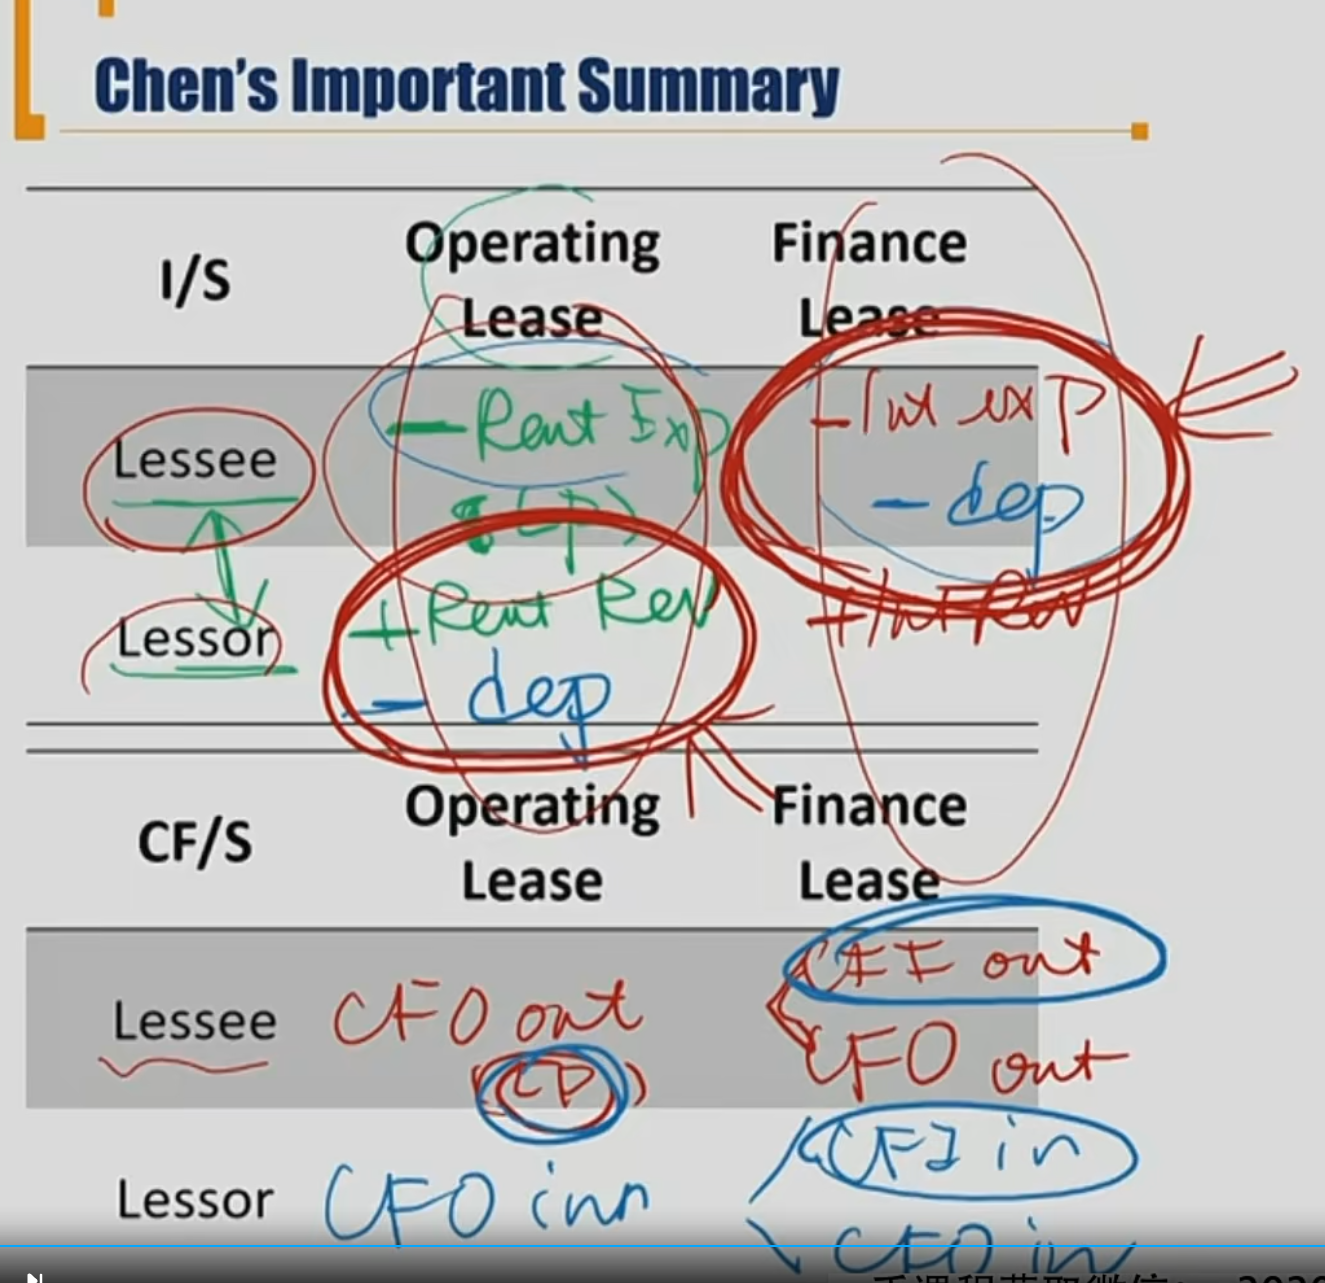 Chen's Important Summary
I/S Operating Lease Finance Lease
Lessee - Rent Exp - Int exp
- dep
Lessor + Rent Rev + Int Rev
- dep
CF/S Operating Lease Finance Lease
Lessee CFO out CFF out
CFO out
Lessor CFO inn CFI in
CFO in